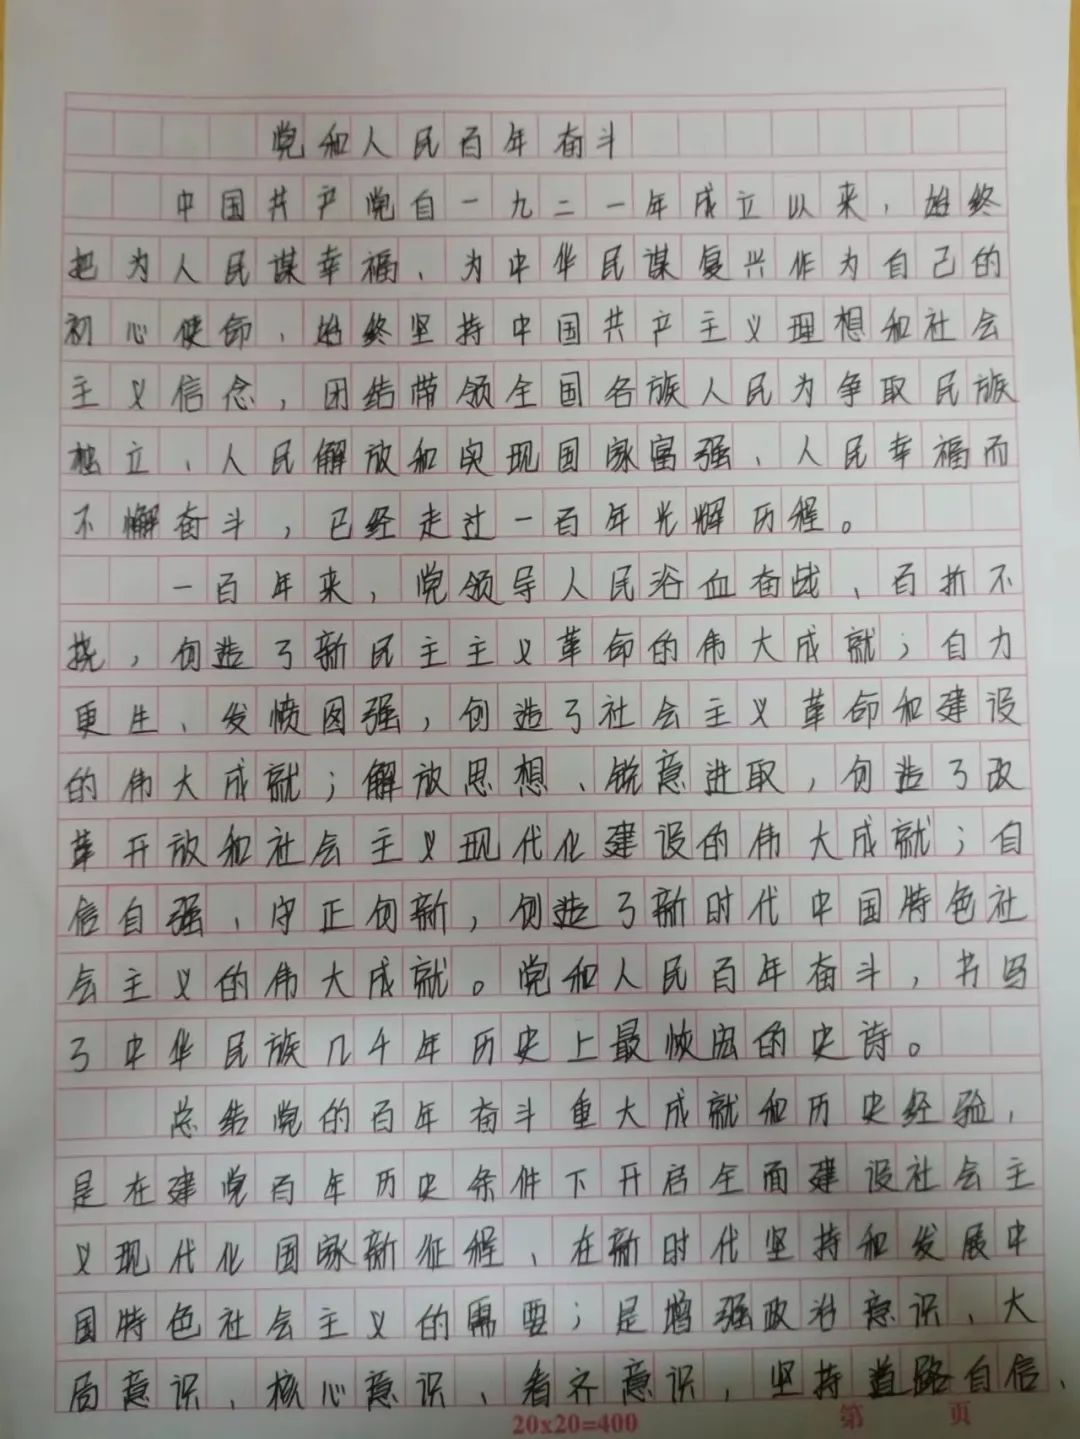 党和人民百年奋斗
中国共产党自一九二一年成立以来，始终
把为人民谋幸福、为中华民谋复兴作为自己的
初心使命，始终坚持中国共产主义理想和社会
主义信念，团结带领全国各族人民为争取民族
独立、人民解放和实现国家富强、人民幸福而
不懈奋斗，已经走过一百年光辉历程。
一百年来，党领导人民浴血奋战、百折不
挠，创造了新民主主义革命的伟大成就；自力
更生、发愤图强，创造了社会主义革命和建设
的伟大成就；解放思想、锐意进取，创造了改
革开放和社会主义现代化建设的伟大成就；自
信自强、守正创新，创造了新时代中国特色社
会主义的伟大成就。党和人民百年奋斗，书写
了中华民族几千年历史上最恢宏的史诗。
总结党的百年奋斗重大成就和历史经验，
是在建党百年历史条件下开启全面建设社会主
义现代化国家新征程、在新时代坚持和发展中
国特色社会主义的需要；是增强政治意识、大
局意识、核心意识、看齐意识，坚持道路自信、
20x20=400 第 页